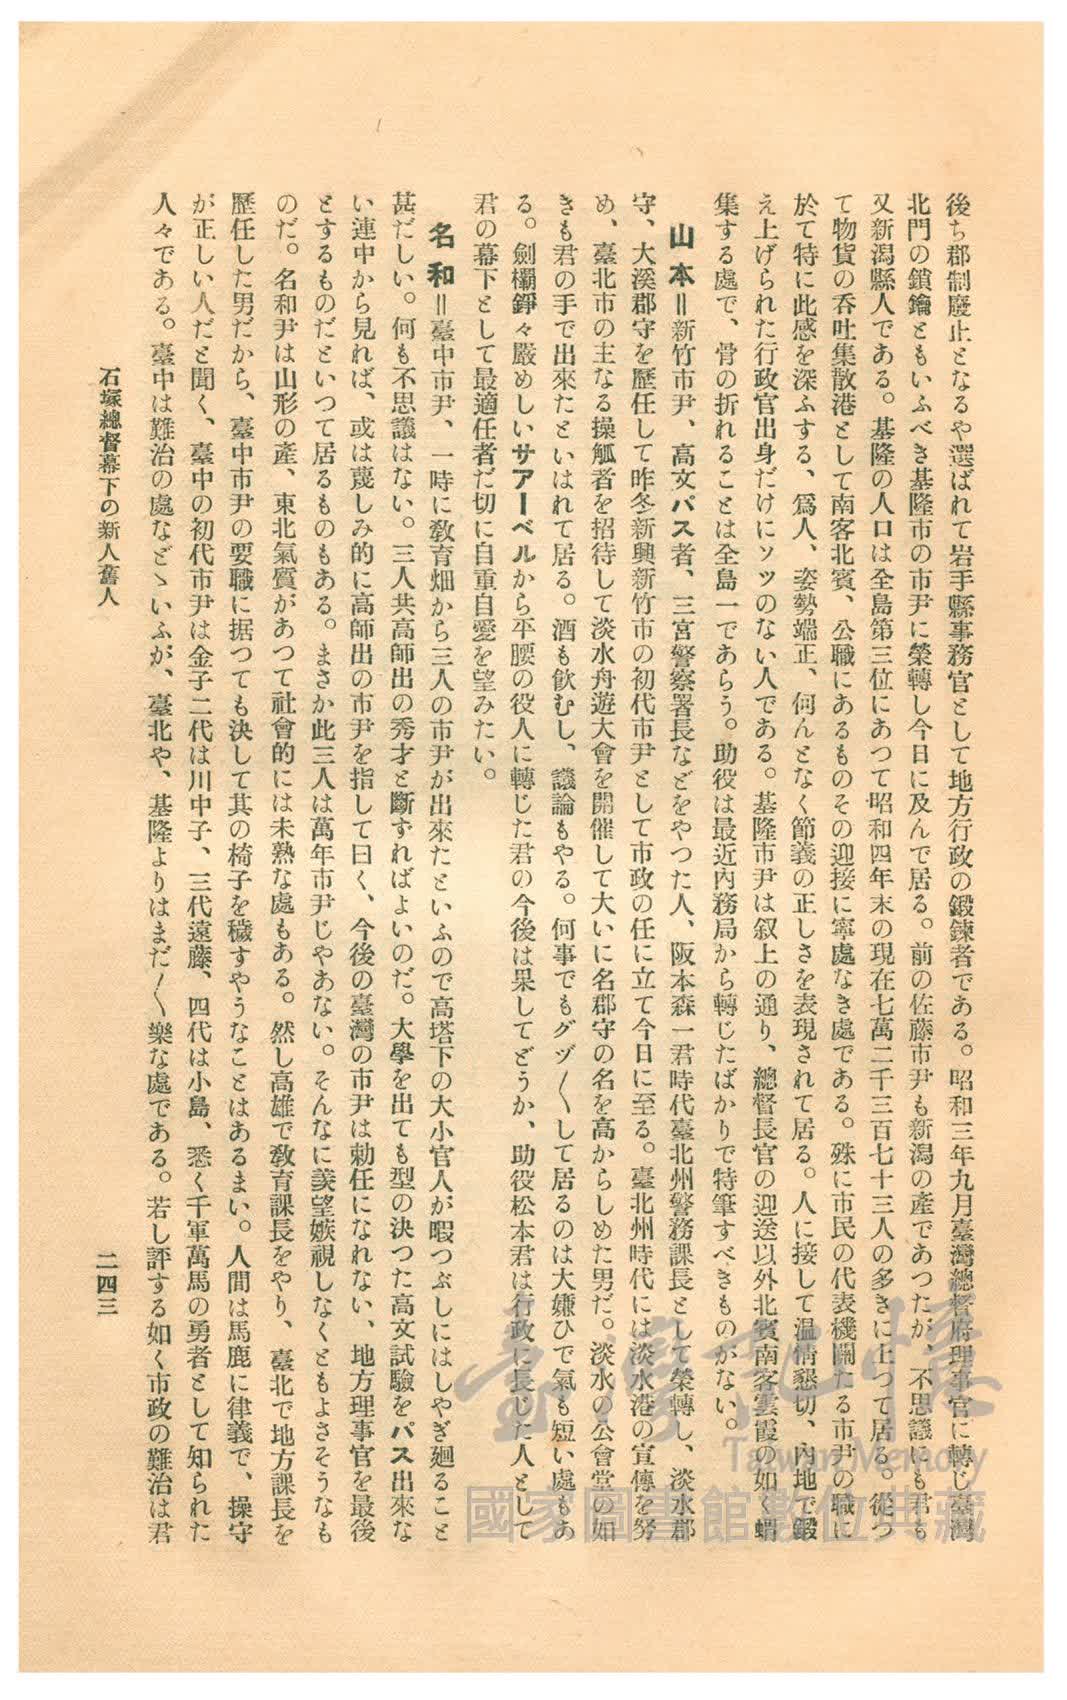 後ち郡制廢止となるや選ばれて岩手縣事務官として地方行政の鍛鍊者である。昭和三年九月臺灣總督府理事官に轉じ臺灣
北門の鎖鑰ともいふべき基隆市の市尹に榮轉し今日に及んで居る。前の佐藤市尹も新潟の產であつたが、不思議にも君も
又新潟縣人である。基隆の人口は全島第三位にあつて昭和四年末の現在七萬二千三百七十三人の多きに上つて居る。從つ
て物貨の呑吐集散港として南客北賓、公職にあるものその迎接に寧處なき處である。殊に市民の代表機關たる市尹の職に
於て特に此感を深ふする、爲人、姿勢端正、何んとなく節義の正しさを表現されて居る。人に接して温情懇切、內地で鍛
え上げられた行政官出身だけにソツのない人である。基隆市尹は叙上の通り、總督長官の迎送以外北賓南客雲霞の如く蝟
集する處で、骨の折れることは全島一であらう。助役は最近內務局から轉じたばかりで特筆すべきものがない。
山本＝新竹市尹、高文パス者、三宮警察署長などをやつた人、阪本森一君時代臺北州警務課長として榮轉し、淡水郡
守、大溪郡守を歷任して昨冬新興新竹市の初代市尹として市政の任に立て今日に至る。臺北州時代には淡水港の宣傳を努
め、臺北市の主なる操觚者を招待して淡水舟遊大會を開催して大いに名郡守の名を高からしめた男だ。淡水の公會堂の如
きも君の手で出來たといはれて居る。酒も飮むし、議論もやる。何事でもグヅ〱して居るのは大嫌ひで氣も短い處もあ
る。劍欛錚々嚴めしいサアーベルから平腰の役人に轉じた君の今後は果してどうか、助役松本君は行政に長じた人として
君の幕下として最適任者だ切に自重自愛を望みたい。
名和＝臺中市尹、一時に敎育畑から三人の市尹が出來たといふので高塔下の大小官人が暇つぶしにはしやぎ廻ること
甚だしい。何も不思議はない。三人共高師出の秀才と斷ずればよいのだ。大學を出ても型の決つた高文試驗をパス出來な
い連中から見れば、或は蔑しみ的に高師出の市尹を指して曰く、今後の臺灣の市尹は勅任になれない、地方理事官を最後
とするものだといつて居るものもある。まさか此三人は萬年市尹じやあない。そんなに羨望嫉視しなくともよさそうなも
のだ。名和尹は山形の產、東北氣質があつて社會的には未熟な處もある。然し高雄で敎育課長をやり、臺北で地方課長を
歷任した男だから、臺中市尹の要職に据つても決して其の椅子を穢すやうなことはあるまい。人間は馬鹿に律義で、操守
が正しい人だと聞く、臺中の初代市尹は金子二代は川中子、三代遠藤、四代は小島、悉く千軍萬馬の勇者として知られた
人々である。臺中は難治の處などゝいふが、臺北や、基隆よりはまだ〱樂な處である。若し評する如く市政の難治は君
石塚總督幕下の新人舊人
二四三
臺灣記憶
Taiwan Memory
國家圖書館數位典藏